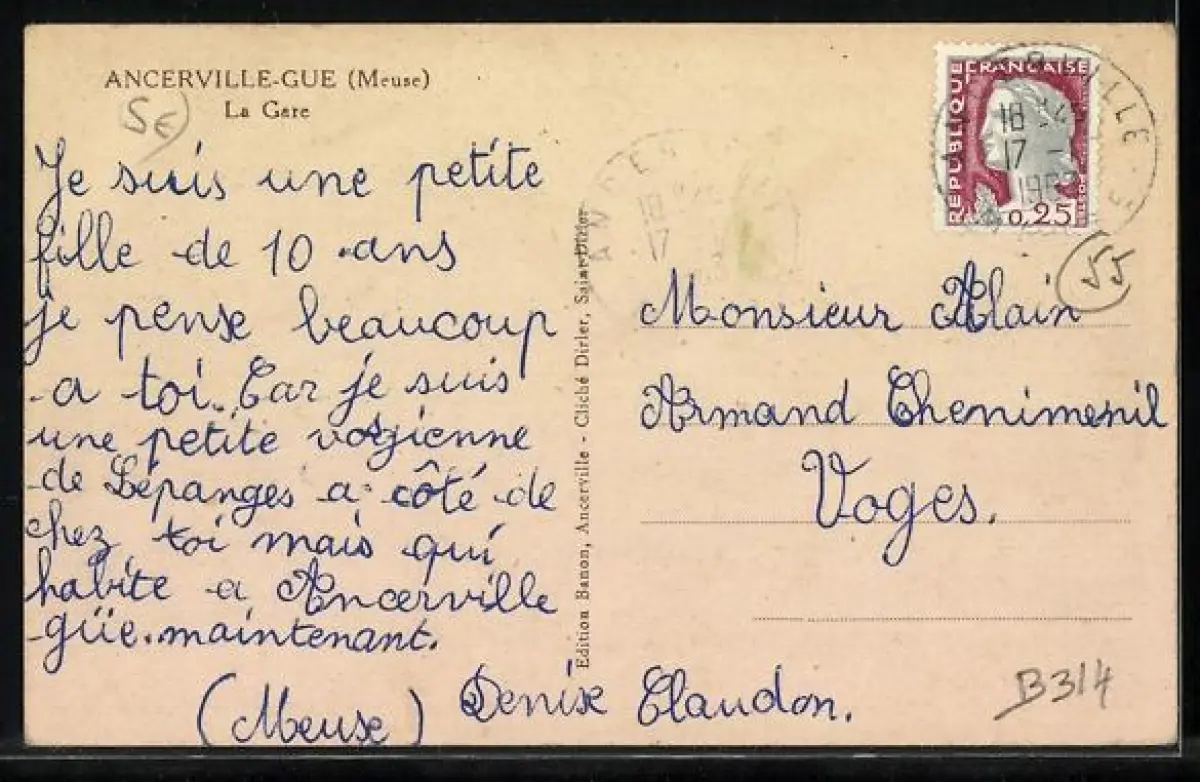 ANCERVILLE-GUE (Meuse)
La Gare
5€
Je suis une petite
fille de 10 ans
je pense beaucoup
a toi. Car je suis
une petite vosgienne
de Lépanges a côté de
chez toi mais qui
habite a Ancerville
güe.maintenant.
(Meuse) Denise Claudon.
Edition Banon, Ancerville - Cliché Dirler, Saint-Dizier
REPUBLIQUE
FRANÇAISE
POSTES
0,25
18
17
18
17
55
Monsieur Alain
Armand Chenimenil
Voges.
B314